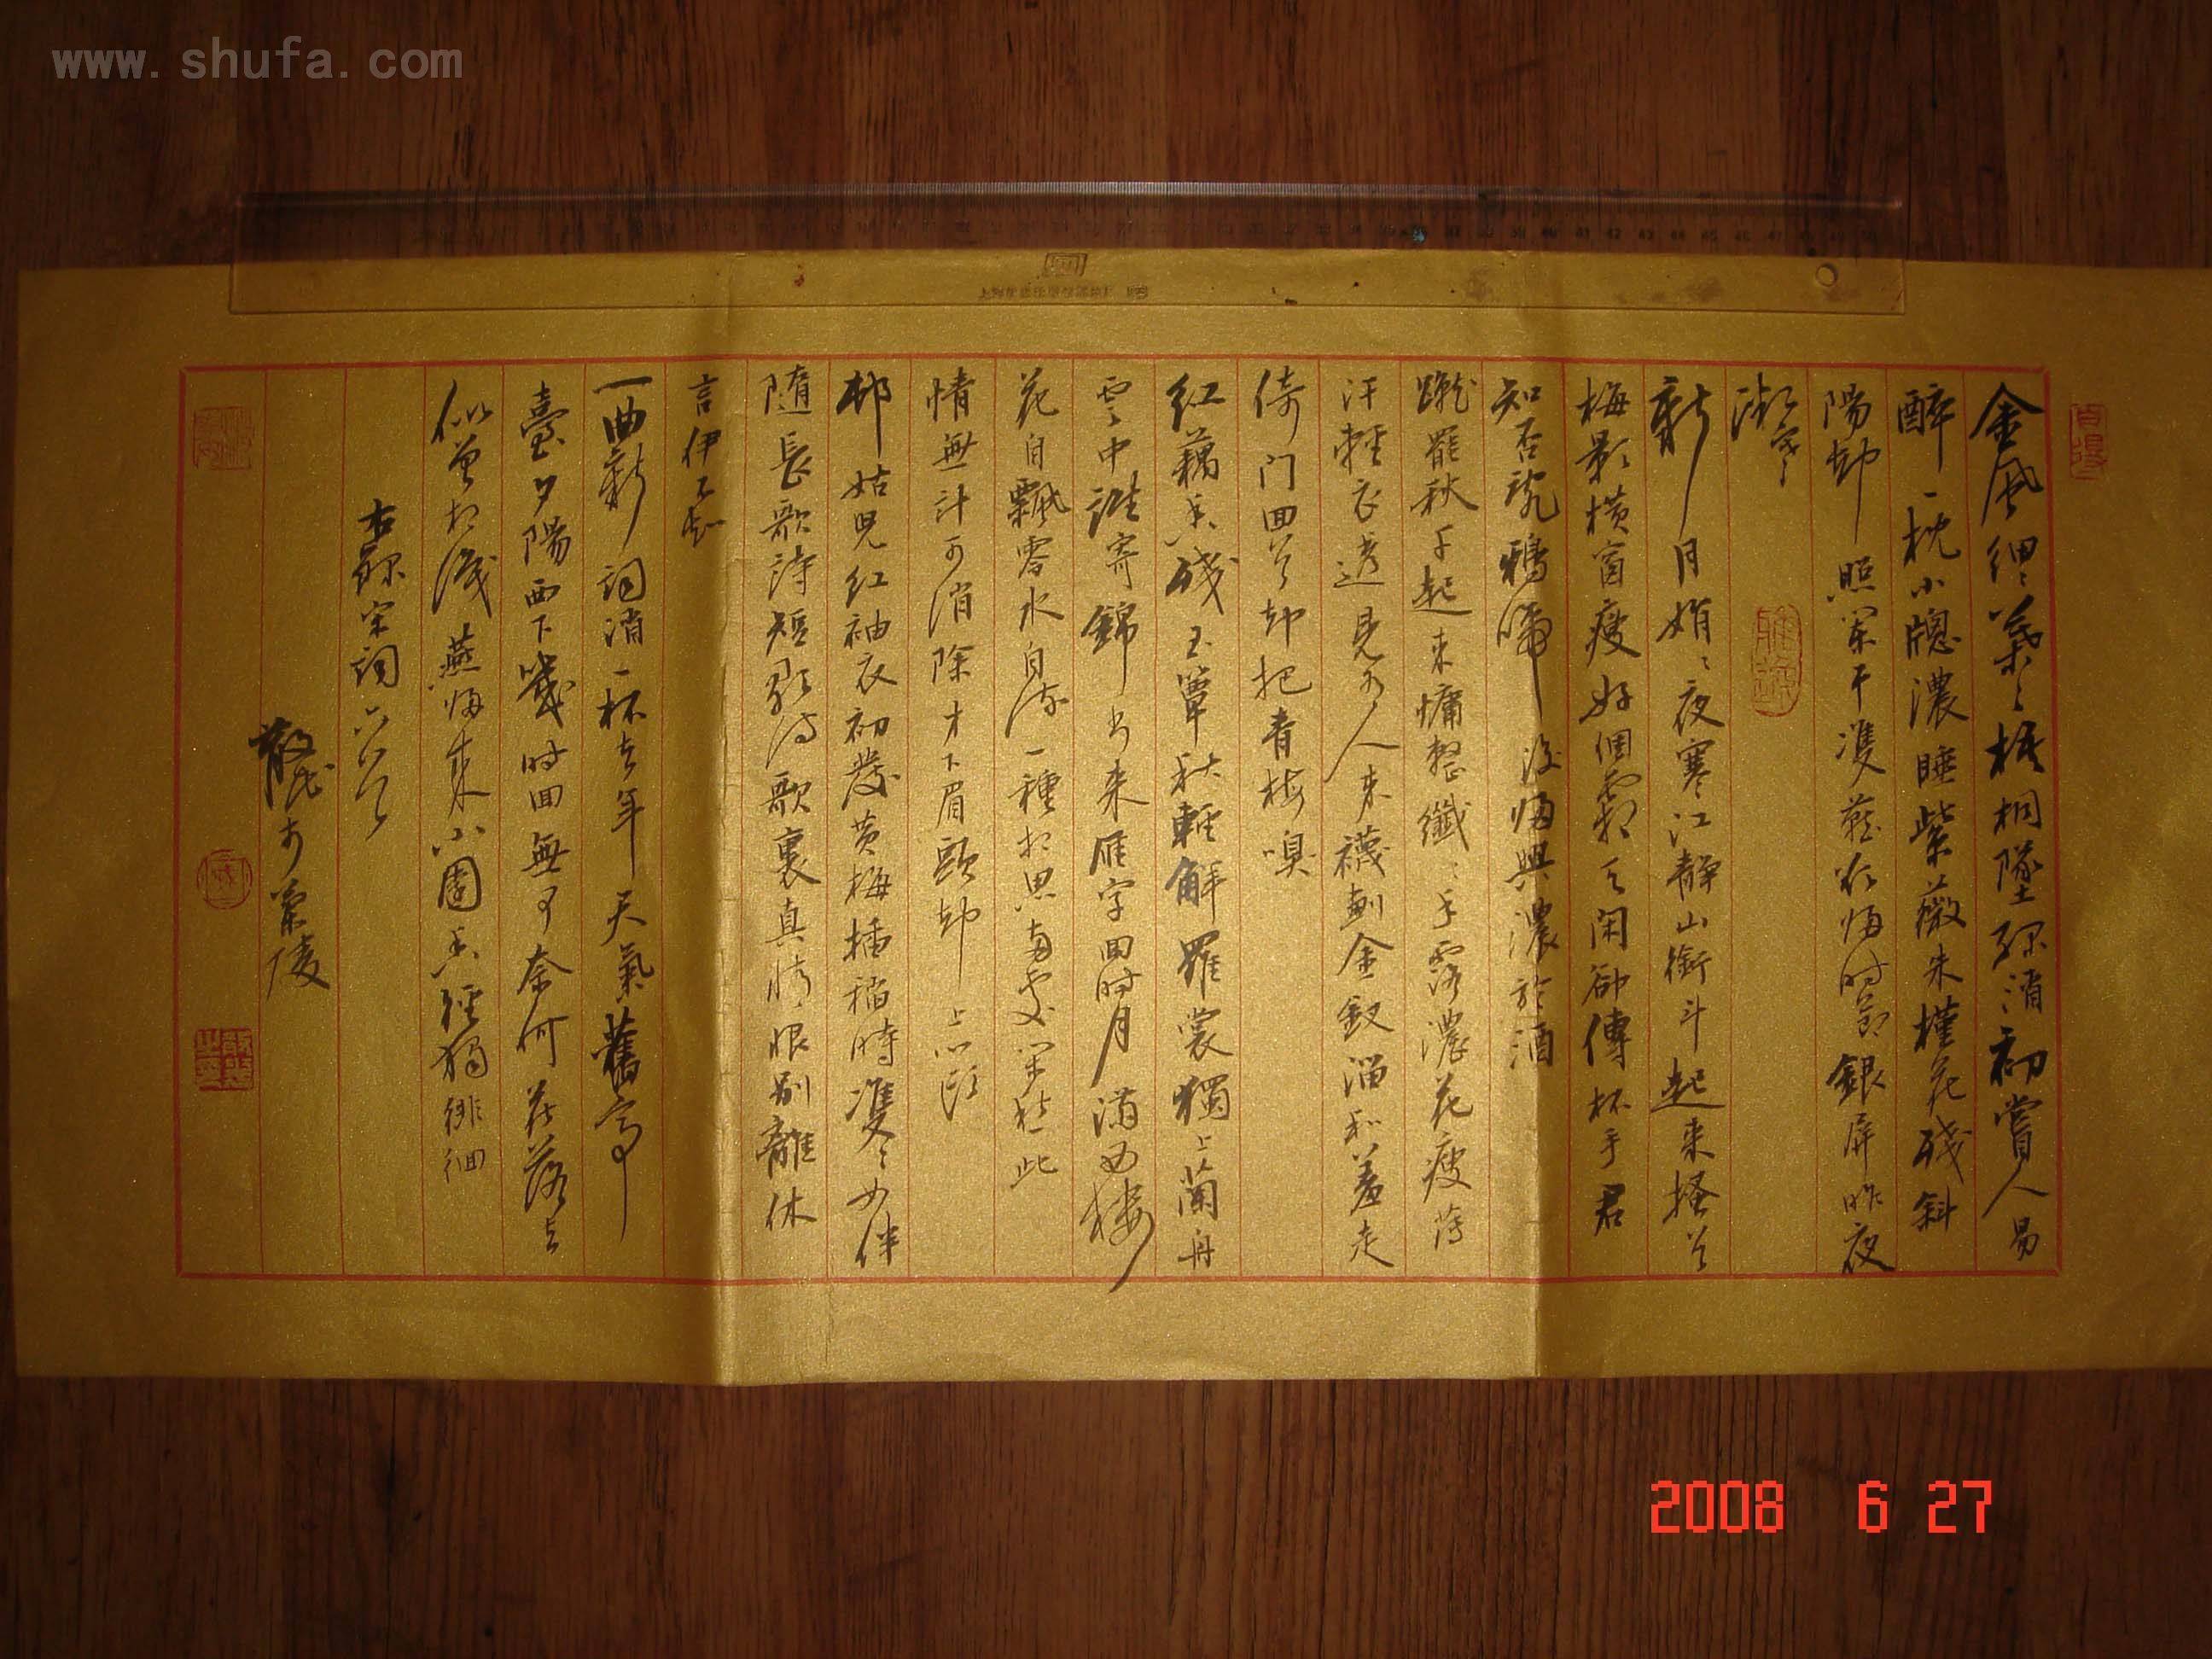 www.shufa.com
金風細〻葉〻梧桐墜綠酒初嘗人易
醉一枕小牕濃睡紫薇朱槿花殘斜
陽却照闌干雙燕欲歸时節銀屏昨夜
微寒
新月娟〻夜寒江靜山銜斗起来搔首
梅影橫窗瘦好個霜天閑卻傳杯手君
知否亂鴉啼後歸興濃於酒
蹴罷秋千起来慵整纖〻手露濃花瘦薄
汗輕衣透見有人来襪剗金釵溜和羞走
倚门回首却把青梅嗅
红藕香殘玉簟秋輕解羅裳獨上蘭舟
雲中誰寄錦书来雁字回时月滿西樓
花自飄零水自流一種相思兩處閑愁此
情無計可消除才下眉頭却上心頭
村姑兒红袖衣初發黃梅插稻時雙〻女伴
隨長歌詩短歌詩歌裏真情恨别離休
言伊不知
一曲新詞酒一杯去年天氣舊亭
臺夕陽西下幾时回無可奈何花落去
似曾相識燕歸来小園香徑獨徘徊
右錄宋詞六首
蘭陵
2008 6 27